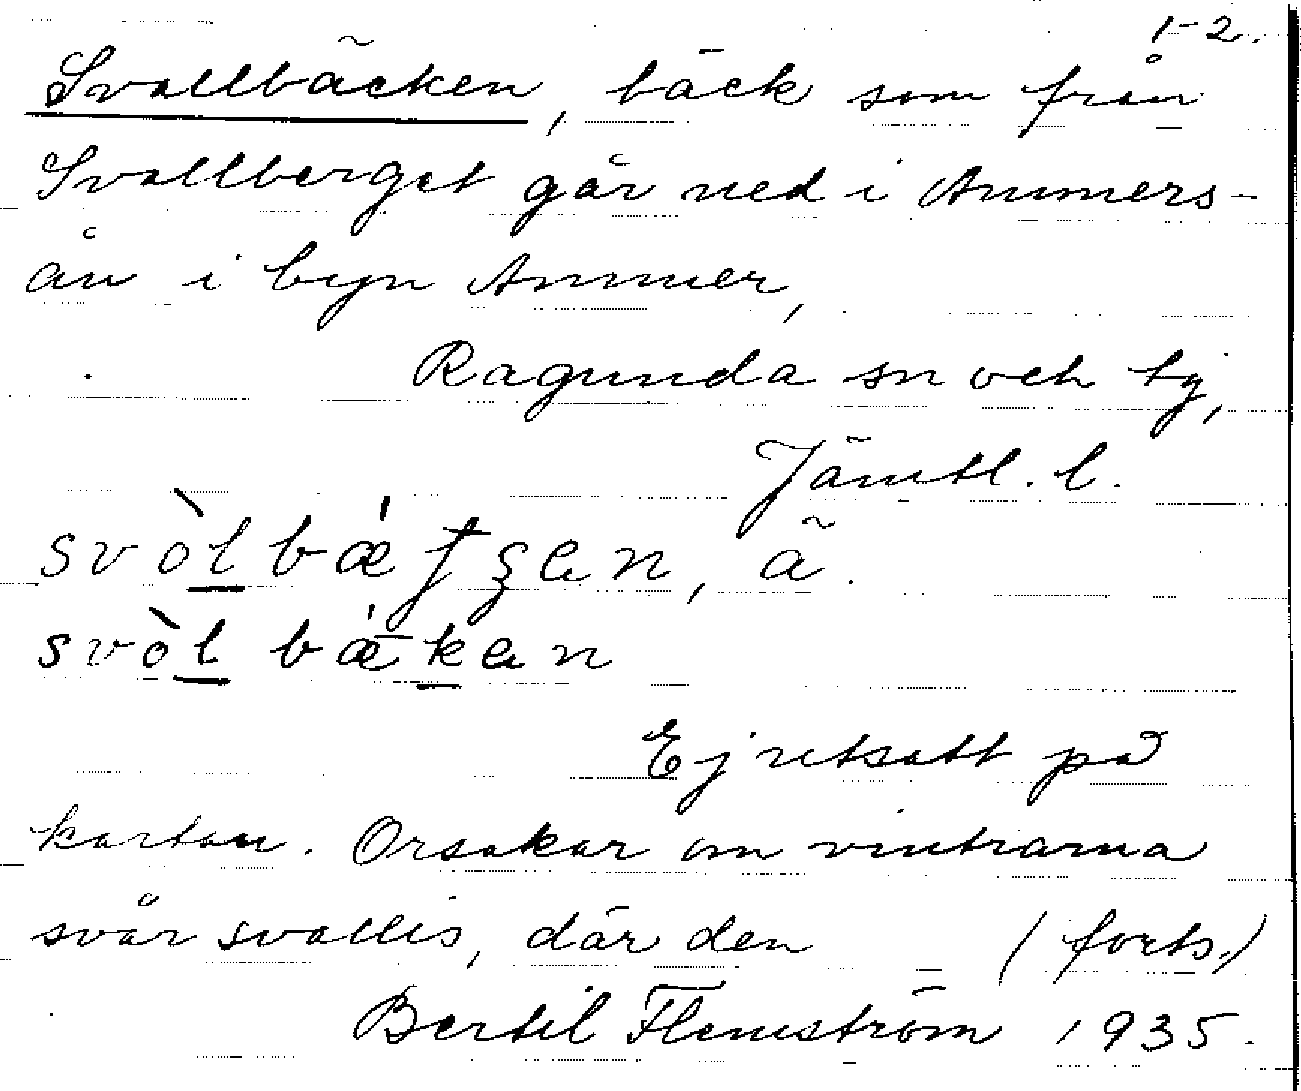 1-2.
Svallbäcken, bäck som från
Svallberget går ned i Ammers-
ån i byn Ammer,
Ragunda sn och tg,
Jämtl. l.
svòl bǽ
svòl bǽken
Ej utsatt på
kartan. Orsakar om vintrarna
svår svallis, där den (forts.)
Bertil Flemström 1935.